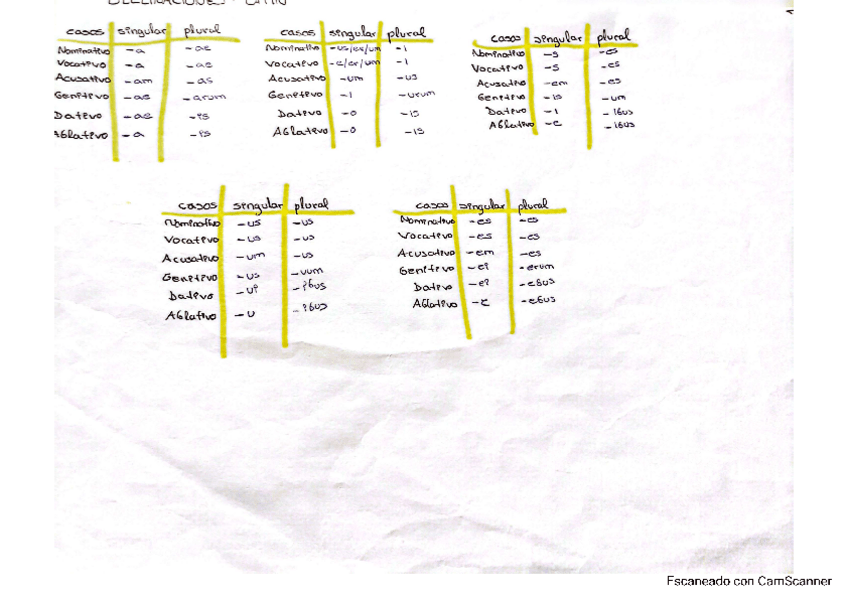 DECLINACIONES - LATÍN
casos singular plural
Nominativo -a -ae
Vocativo -a -ae
Acusativo -am -as
Genitivo -ae -arum
Dativo -ae -is
Ablativo -a -is
casos singular plural
Nominativo -us/er/um -i
Vocativo -e/er/um -i
Acusativo -um -us
Genitivo -i -urum
Dativo -o -is
Ablativo -o -is
casos singular plural
Nominativo -s -es
Vocativo -s -es
Acusativo -em -es
Genitivo -is -um
Dativo -i -ibus
Ablativo -e -ibus
casos singular plural
Nominativo -us -us
Vocativo -us -us
Acusativo -um -us
Genitivo -us -uum
Dativo -ui -ibus
Ablativo -u -ibus
casos singular plural
Nominativo -es -es
Vocativo -es -es
Acusativo -em -es
Genitivo -ei -erum
Dativo -ei -ebus
Ablativo -e -ebus
Escaneado con CamScanner